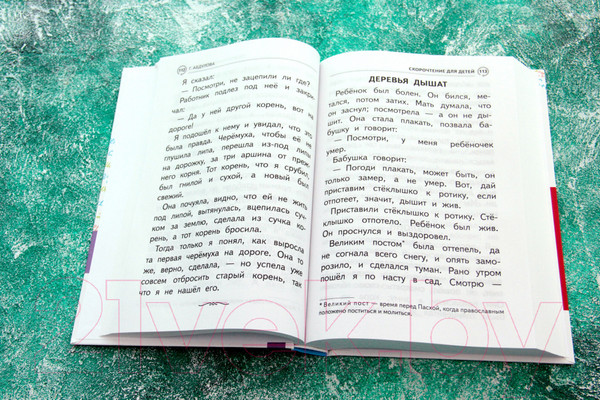 112 Г. АБДУЛОВА
Я сказал:
— Посмотри, не зацепили ли где?
Работник подлез под неё и закри-
чал:
— Да у ней другой корень, вот на
дороге!
Я подошёл к нему и увидал, что это
была правда. Черёмуха, чтобы её не
глушила липа, перешла из-под липы
на дорожку, за три аршина от преж-
него корня. Тот корень, что я срубил,
был гнилой и сухой, а новый был
свежий.
Она почуяла, видно, что ей не жить
под липой, вытянулась, вцепилась суч-
ком за землю, сделала из сучка ко-
рень, а тот корень бросила.
Тогда только я понял, как выросла
та первая черёмуха на дороге. Она то
же, верно, сделала, — но успела уже
совсем отбросить старый корень, так
что я не нашёл его.
СКОРОЧТЕНИЕ ДЛЯ ДЕТЕЙ 113
ДЕРЕВЬЯ ДЫШАТ
Ребёнок был болен. Он бился, ме-
тался, потом затих. Мать думала, что
он заснул; посмотрела — а он не ды-
шит. Она стала плакать, позвала ба-
бушку и говорит:
— Посмотри, у меня ребёночек
умер.
Бабушка говорит:
— Погоди плакать, может быть, он
только замер, а не умер. Вот, дай
приставим стёклышко к ротику, если
отпотеет, значит, дышит и жив.
Приставили стёклышко к ротику. Стё-
клышко отпотело. Ребёнок был жив.
Он проснулся и выздоровел.
Великим постом* была оттепель, да
не согнала всего снегу, и опять замо-
розило, и сделался туман. Рано утром
пошёл я по насту в сад. Смотрю —
* Великий пост — время перед Пасхой, когда православным
положено поститься и молиться.
21vek.by